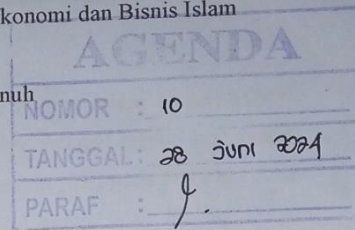 konomi dan Bisnis Islam
AGENDA
nuh
NOMOR : 10
TANGGAL : 28 Juni 2024
PARAF :